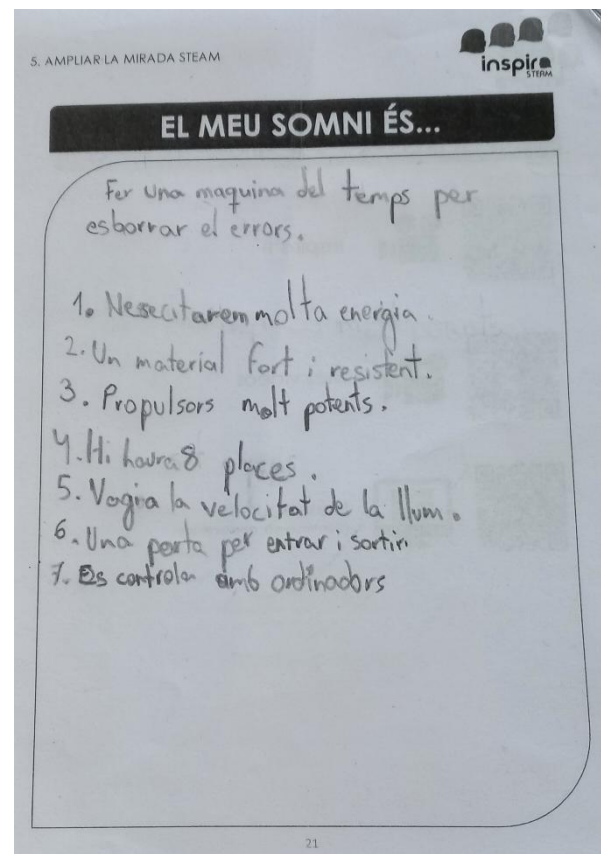 5. AMPLIAR LA MIRADA STEAM
inspira
STEAM
EL MEU SOMNI ÉS...
Fer una maquina del temps per
esborrar el errors.
1. Nesecitarem molta energia.
2. Un material fort i resistent.
3. Propulsors molt potents.
4. Hi haura 8 places.
5. Vagia la velocitat de la llum.
6. Una porta per entrar i sortir.
7. Es controla amb ordinadors
21